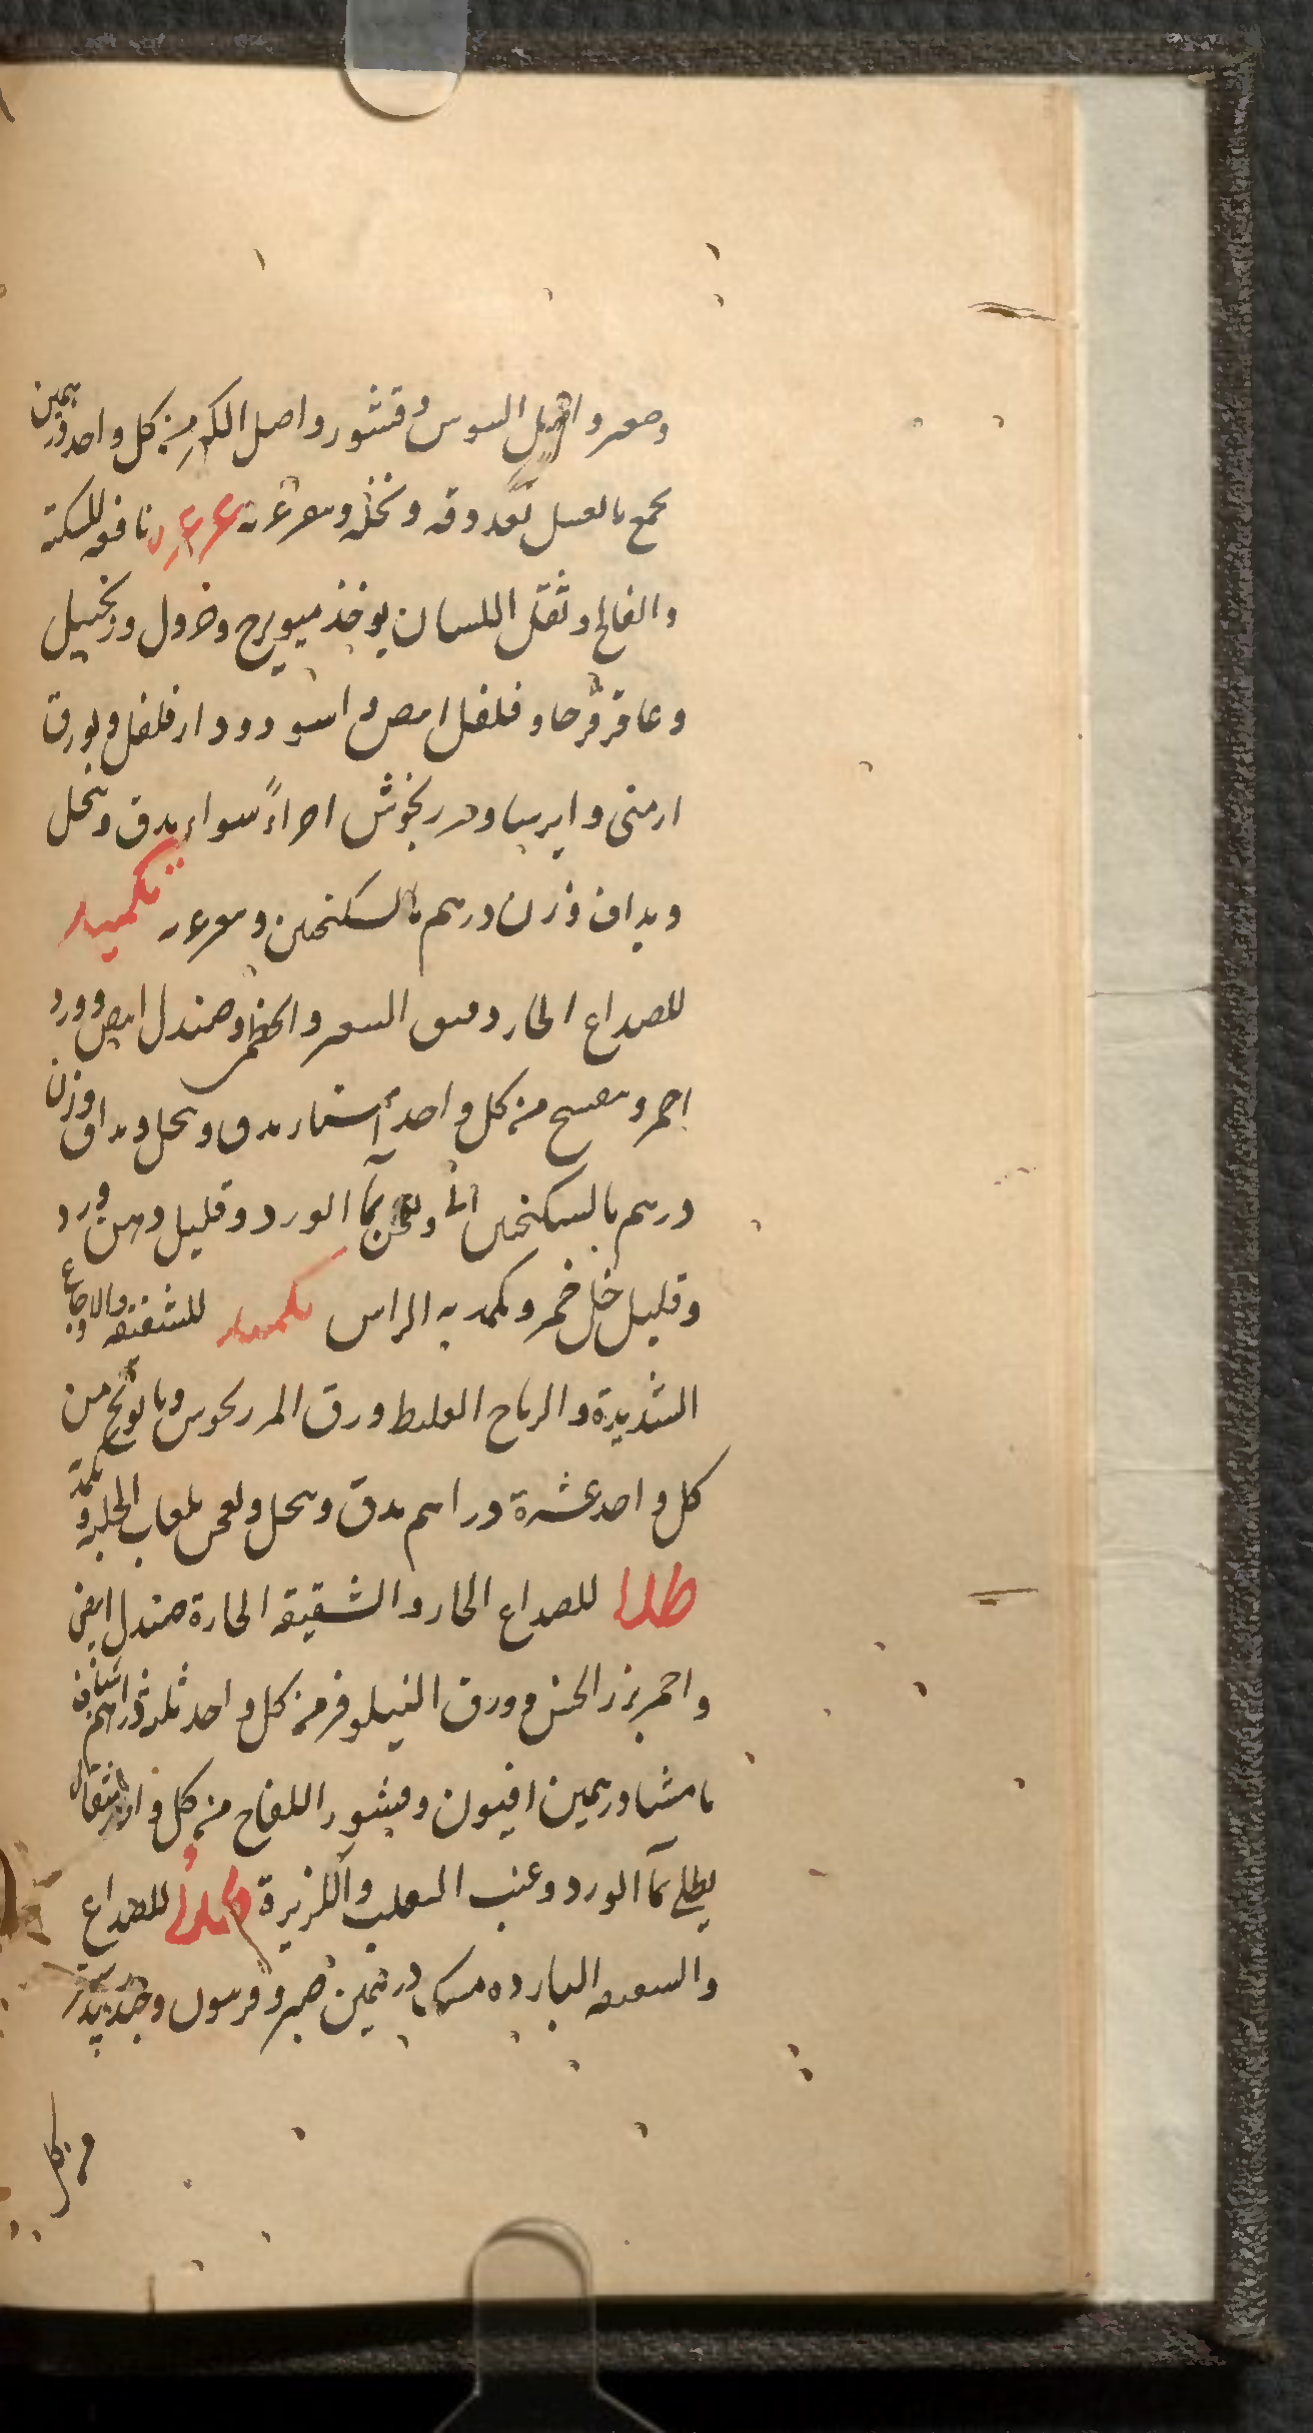 وصعتر واصل السوس وقشور واصل الكبر من كل واحد درهمين
يجمع بالعسل بعد دقه ونخله ويتغرغر به غرغره نافعه للسكته
والفالج وثقل اللسان يوخذ ميويزج وخردل وزنجبيل
وعاقرقرحا وفلفل ابيض واسود ودارفلفل وبورق
ارمنى وايرسا ومرزنجوش اجزاءً سواء يدق وينخل
ويداف وزن درهم بالسكنجبين ويتغرغر به تكميد
للصداع الحار دقيق الشعير والخطمى وصندل ابيض وورد
احمر وبنفسج من كل واحد أستار يدق وينخل ويداف وزن
درهم بالسكنجبين ويعجن بمآ الورد وقليل دهن ورد
وقليل خل خمر ويكمد به الراس تكميد للشقيقه والاوجاع
الشديدة والرياح الغليظ ورق المرزنجوش وبابونج من
كل واحد عشرة دراهم يدق وينخل ويعجن بلعاب الحلبه ويكمد
طلاء للصداع الحار والشقيقه الحارة صندل ابيض
واحمر بزر الخس وورق النيلوفر من كل واحد ثلثة دراهم اشياف
ماميثا درهمين افيون وقشور اللفاح من كل واحد مثقال
يطلى بمآ الورد وعنب الثعلب والكزبرة طلاء للصداع
والشقيقه البارده مر درهمين صبر وفربيون وجندبيدستر
من كل